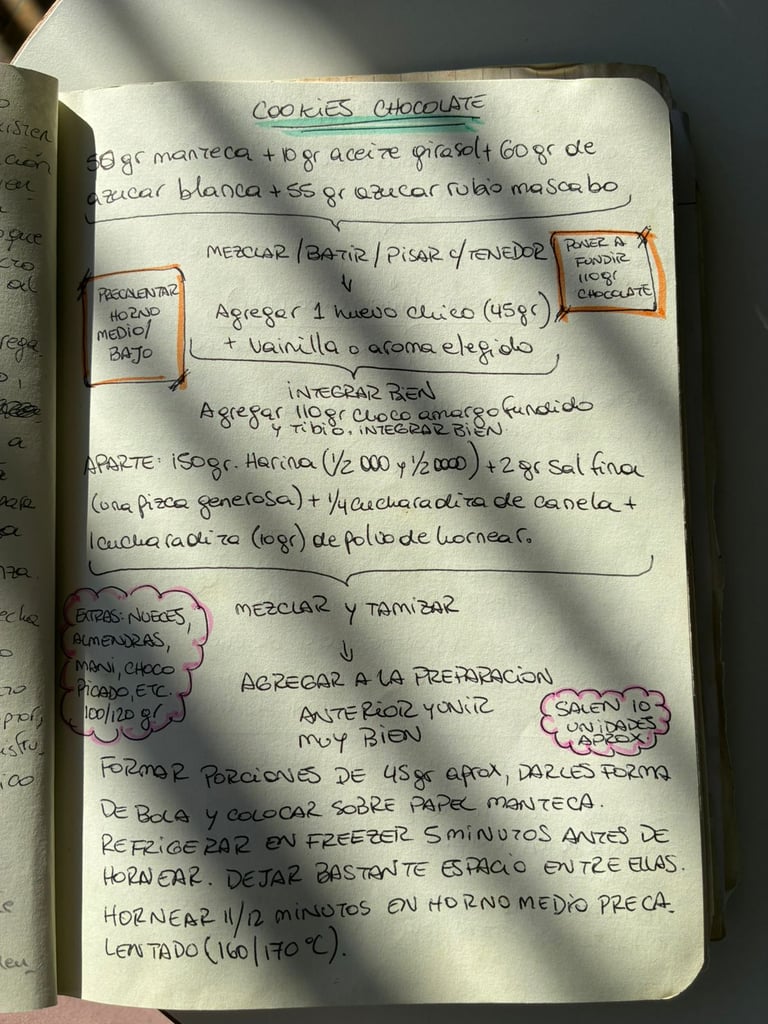 COOKIES CHOCOLATE
50 gr manteca + 10 gr aceite girasol + 60 gr de
azucar blanca + 55 gr azucar rubio mascabo
MEZCLAR / BATIR / PISAR c/TENEDOR
PONER A
FUNDIR
110gr
CHOCOLATE
PRECALENTAR
HORNO
MEDIO/
BAJO
Agregar 1 huevo chico (45gr)
+ vainilla o aroma elegido
INTEGRAR BIEN
Agregar 110gr choco amargo fundido
y TIBIO. INTEGRAR BIEN.
APARTE: 150gr. Harina (1/2 000 y 1/2 0000) + 2 gr sal fina
(una pizca generosa) + 1/4 cucharadita de canela +
1 cucharadita (10gr) de polvo de hornear.
MEZCLAR Y TAMIZAR
EXTRAS: NUECES,
ALMENDRAS,
MANI, CHOCO
PICADO, ETC.
100/120 gr
AGREGAR A LA PREPARACION
ANTERIOR y UNIR
MUY BIEN
SALEN 10
UNIDADES
APROX.
FORMAR PORCIONES DE 45gr aprox, DARLES FORMA
DE BOLA Y COLOCAR SOBRE PAPEL MANTECA.
REFRIGERAR EN FREEZER 5 MINUTOS ANTES DE
HORNEAR. DEJAR BASTANTE ESPACIO ENTRE ELLAS.
HORNEAR 11/12 MINUTOS EN HORNO MEDIO PRECA-
LENTADO (160/170 °C).